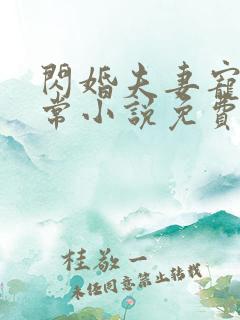 閃婚夫妻寵
常小說免費
桂敬一
未經同意禁止轉載